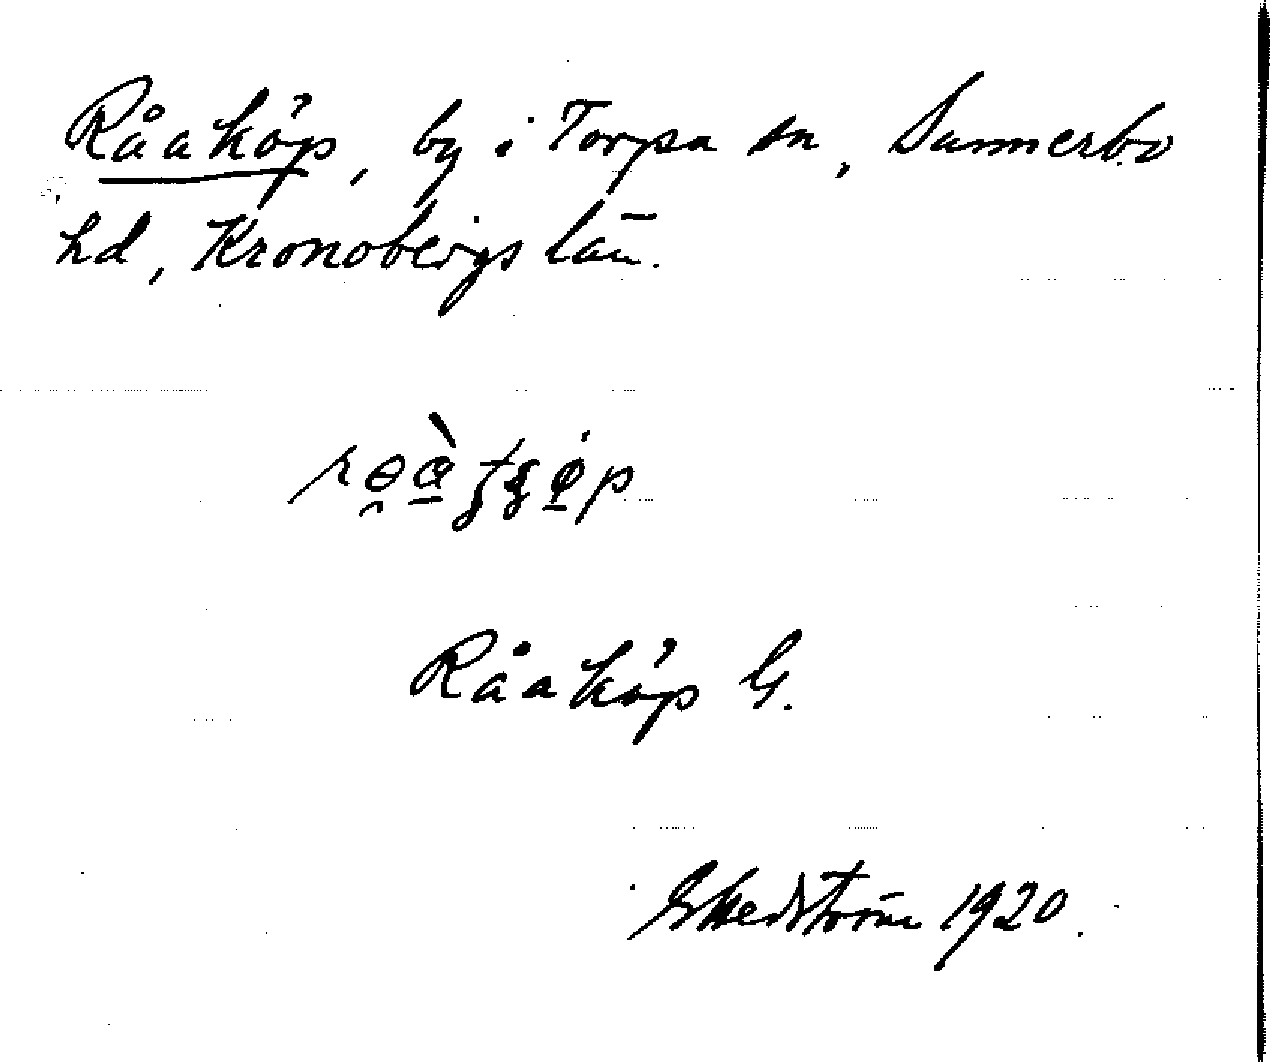 Råaköp, by i Torpa sn, Sunnerbo
hd, Kronobergs län.
Råaköp G.
G Hedström 1920.